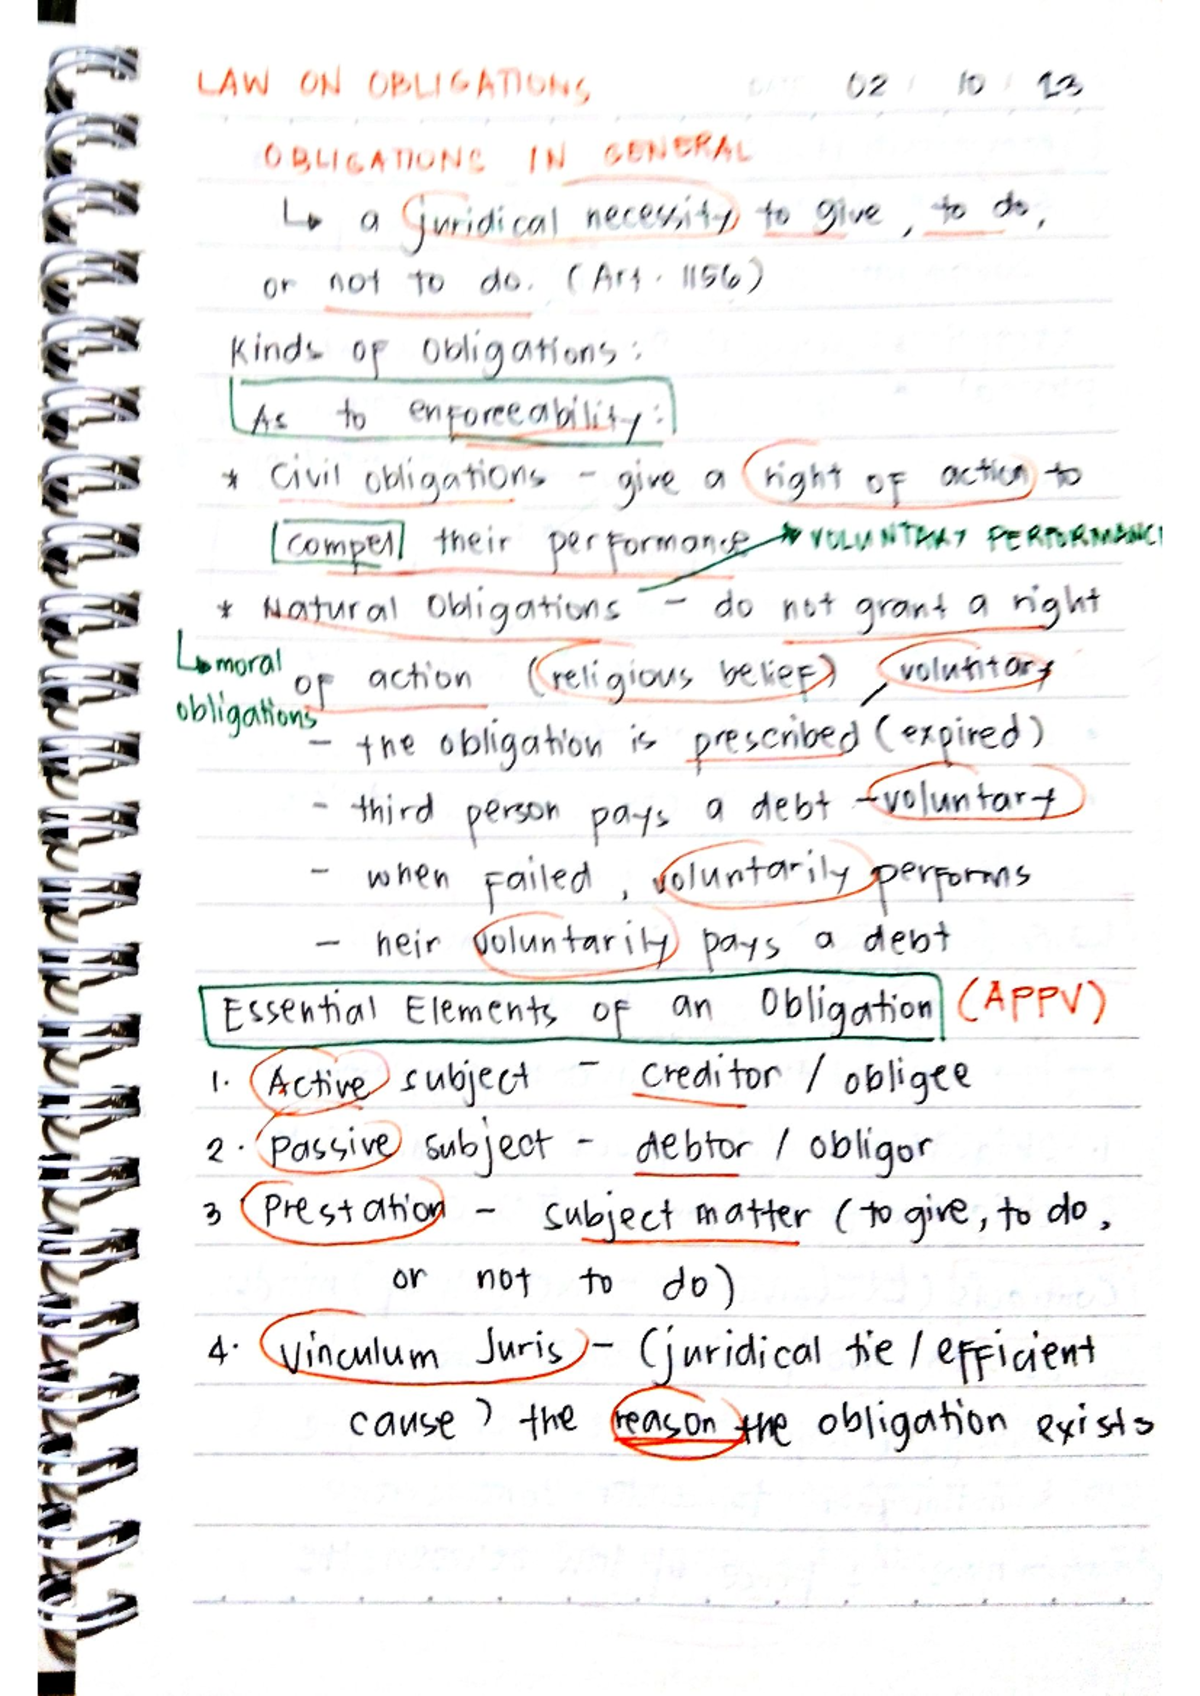 LAW ON OBLIGATIONS 02 / 10 / 23
OBLIGATIONS IN GENERAL
↳ a juridical necessity to give, to do,
or not to do. (Art. 1156)
Kinds of Obligations:
As to enforceability:
* Civil obligations - give a right of action to
compel their performance → VOLUNTARY PERFORMANC
* Natural Obligations - do not grant a right
↳ moral
of action (religious belief), voluntary
obligations
- the obligation is prescribed (expired)
- third person pays a debt - voluntary
- when failed, voluntarily performs
- heir voluntarily pays a debt
Essential Elements of an Obligation (APPV)
1. Active subject - creditor / obligee
2. Passive subject - debtor / obligor
3 Prestation - subject matter (to give, to do,
or not to do)
4. Vinculum Juris - (juridical tie / efficient
cause) the reason the obligation exists